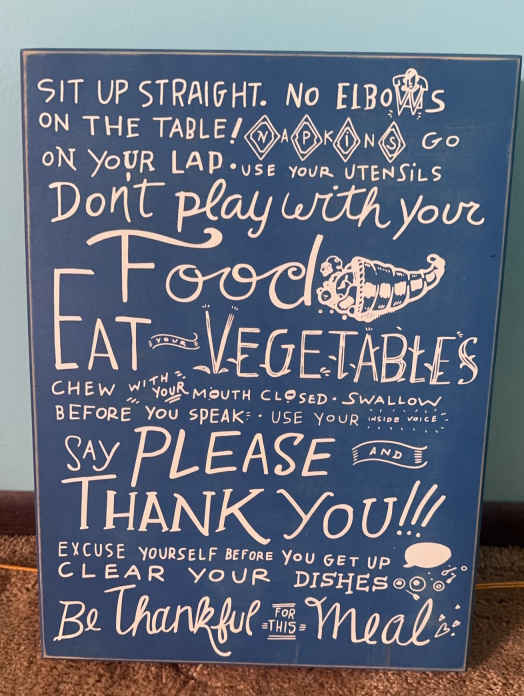 SIT UP STRAIGHT. NO ELBOWS
ON THE TABLE! NAPKINS GO
ON YOUR LAP. USE YOUR UTENSILS
Don't play with your
Food
EAT YOUR VEGETABLES
CHEW WITH YOUR MOUTH CLOSED. SWALLOW
BEFORE YOU SPEAK. USE YOUR INSIDE VOICE
SAY PLEASE AND
THANK YOU!!!
EXCUSE YOURSELF BEFORE YOU GET UP
CLEAR YOUR DISHES
Be Thankful FOR THIS Meal